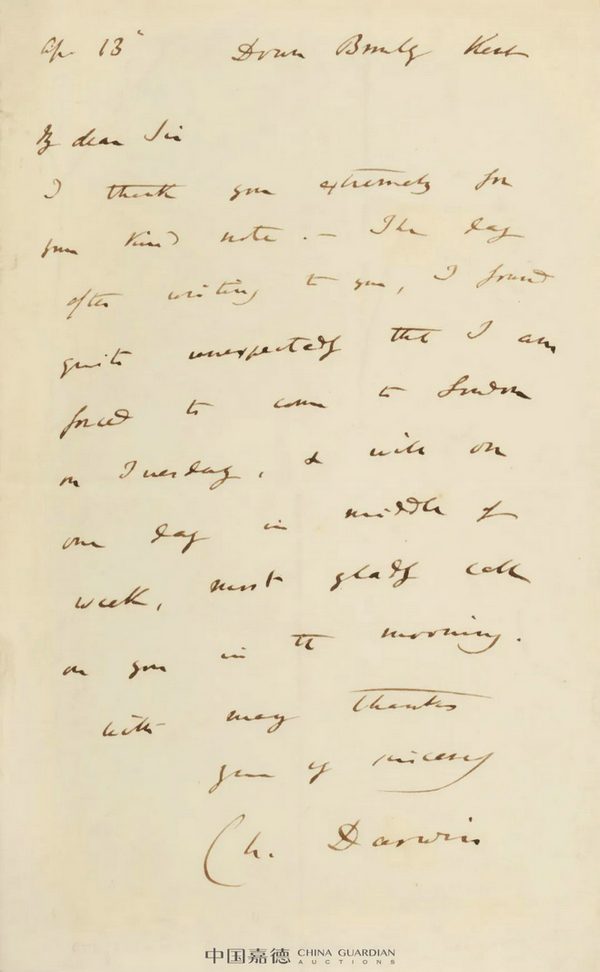 Ap. 13th Down Bromley Kent
My dear Sir
I thank you extremely for
your kind note. — The day
after writing to you, I found
quite unexpectedly that I am
forced to come to London
on Tuesday, & will on
one day in middle of
week, most gladly call
on you in the morning.
With many thanks
yours very sincerely
Ch. Darwin
中国嘉德 CHINA GUARDIAN
AUCTIONS